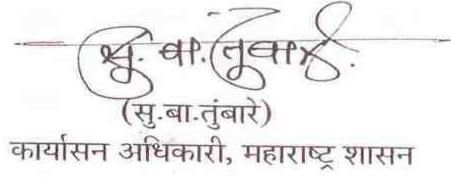 सु. बा. तुंबारे.
(सु.बा.तुंबारे)
कार्यासन अधिकारी, महाराष्ट्र शासन